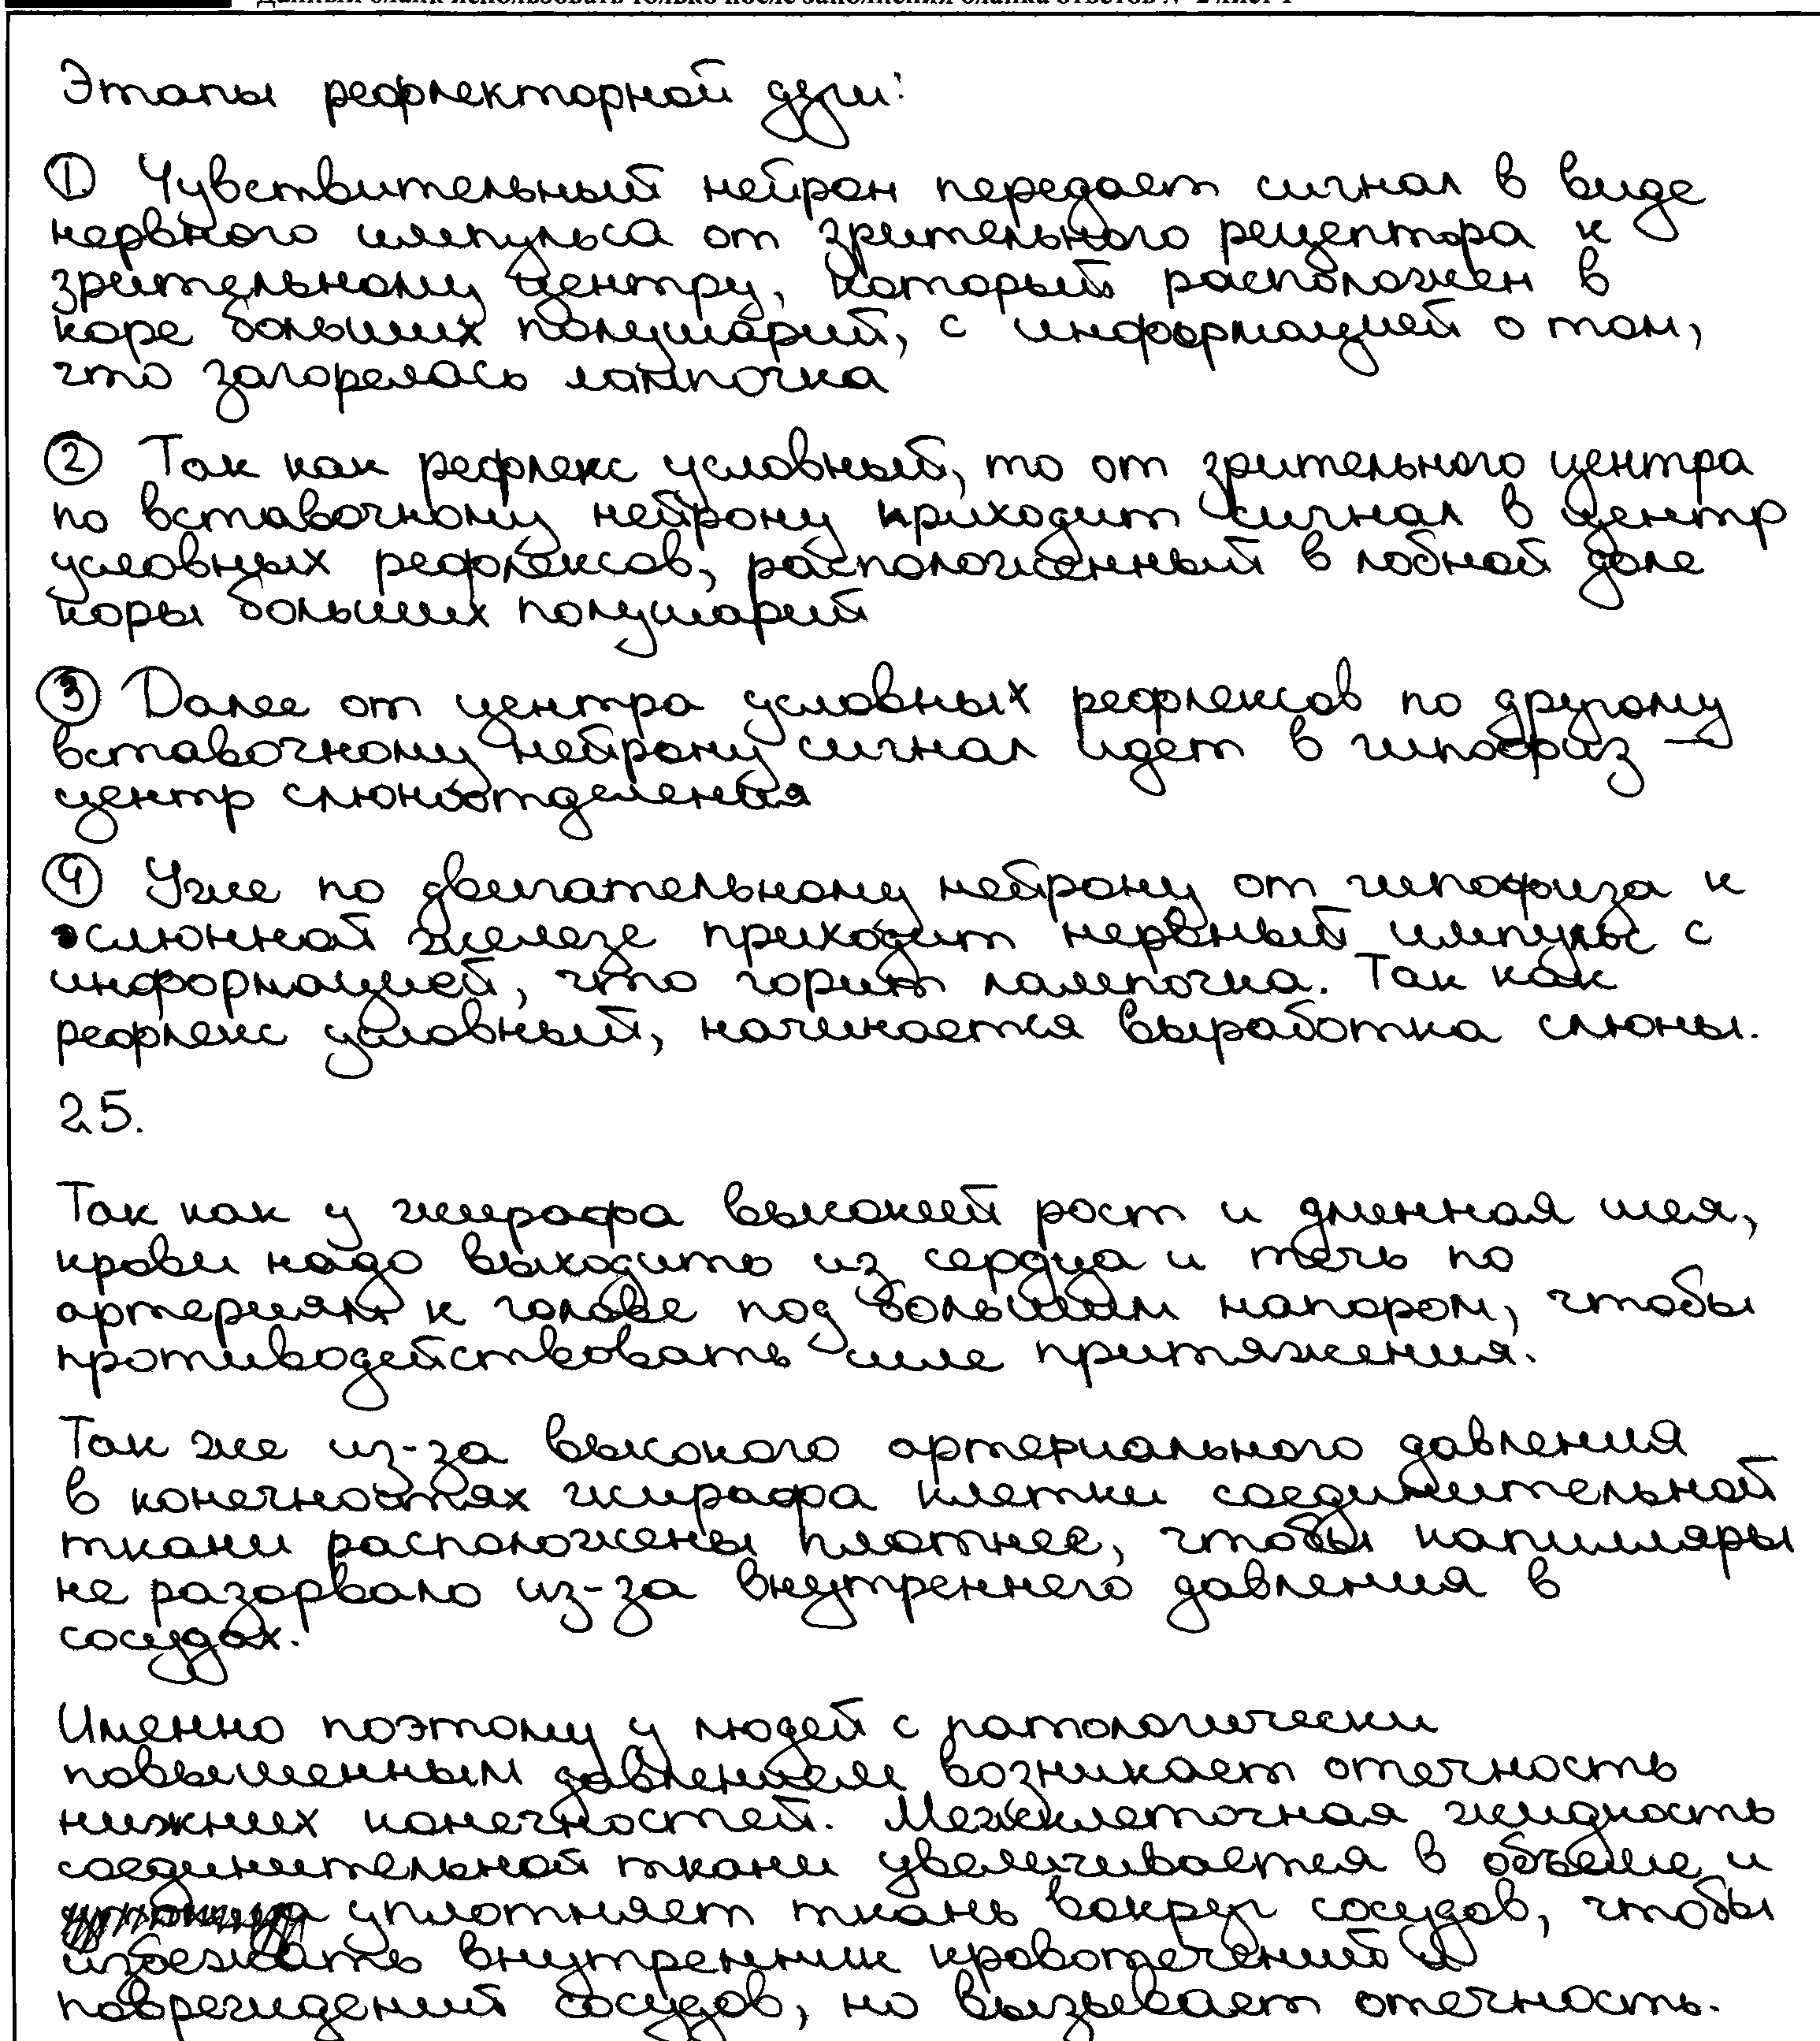 Этапы рефлекторной дуги:
① Чувствительный нейрон передает сигнал в виде
нервного импульса от зрительного рецептора к
зрительному центру, который расположен в
коре больших полушарий, с информацией о том,
что загорелась лампочка
② Так как рефлекс условный, то от зрительного центра
по вставочному нейрону приходит сигнал в центр
условных рефлексов, расположенный в лобной доле
коры больших полушарий
③ Далее от центра условных рефлексов по другому
вставочному нейрону сигнал идет в гипофиз —
центр слюноотделения
④ Уже по двигательному нейрону от гипофиза к
слюнной железе приходит нервный импульс с
информацией, что горит лампочка. Так как
рефлекс условный, начинается выработка слюны.
25.
Так как у жирафа высокий рост и длинная шея,
крови надо выходить из сердца и течь по
артериям к голове под большим напором, чтобы
противодействовать силе притяжения.
Так же из-за высокого артериального давления
в конечностях жирафа клетки соединительной
ткани расположены плотнее, чтобы капилляры
не разорвало из-за внутреннего давления в
сосудах.
Именно поэтому у людей с патологически
повышенным давлением возникает отечность
нижних конечностей. Межклеточная жидкость
соединительной ткани увеличивается в объеме и
уплотняет ткань вокруг сосудов, чтобы
избежать внутренних кровотечений и
повреждений сосудов, но вызывает отечность.